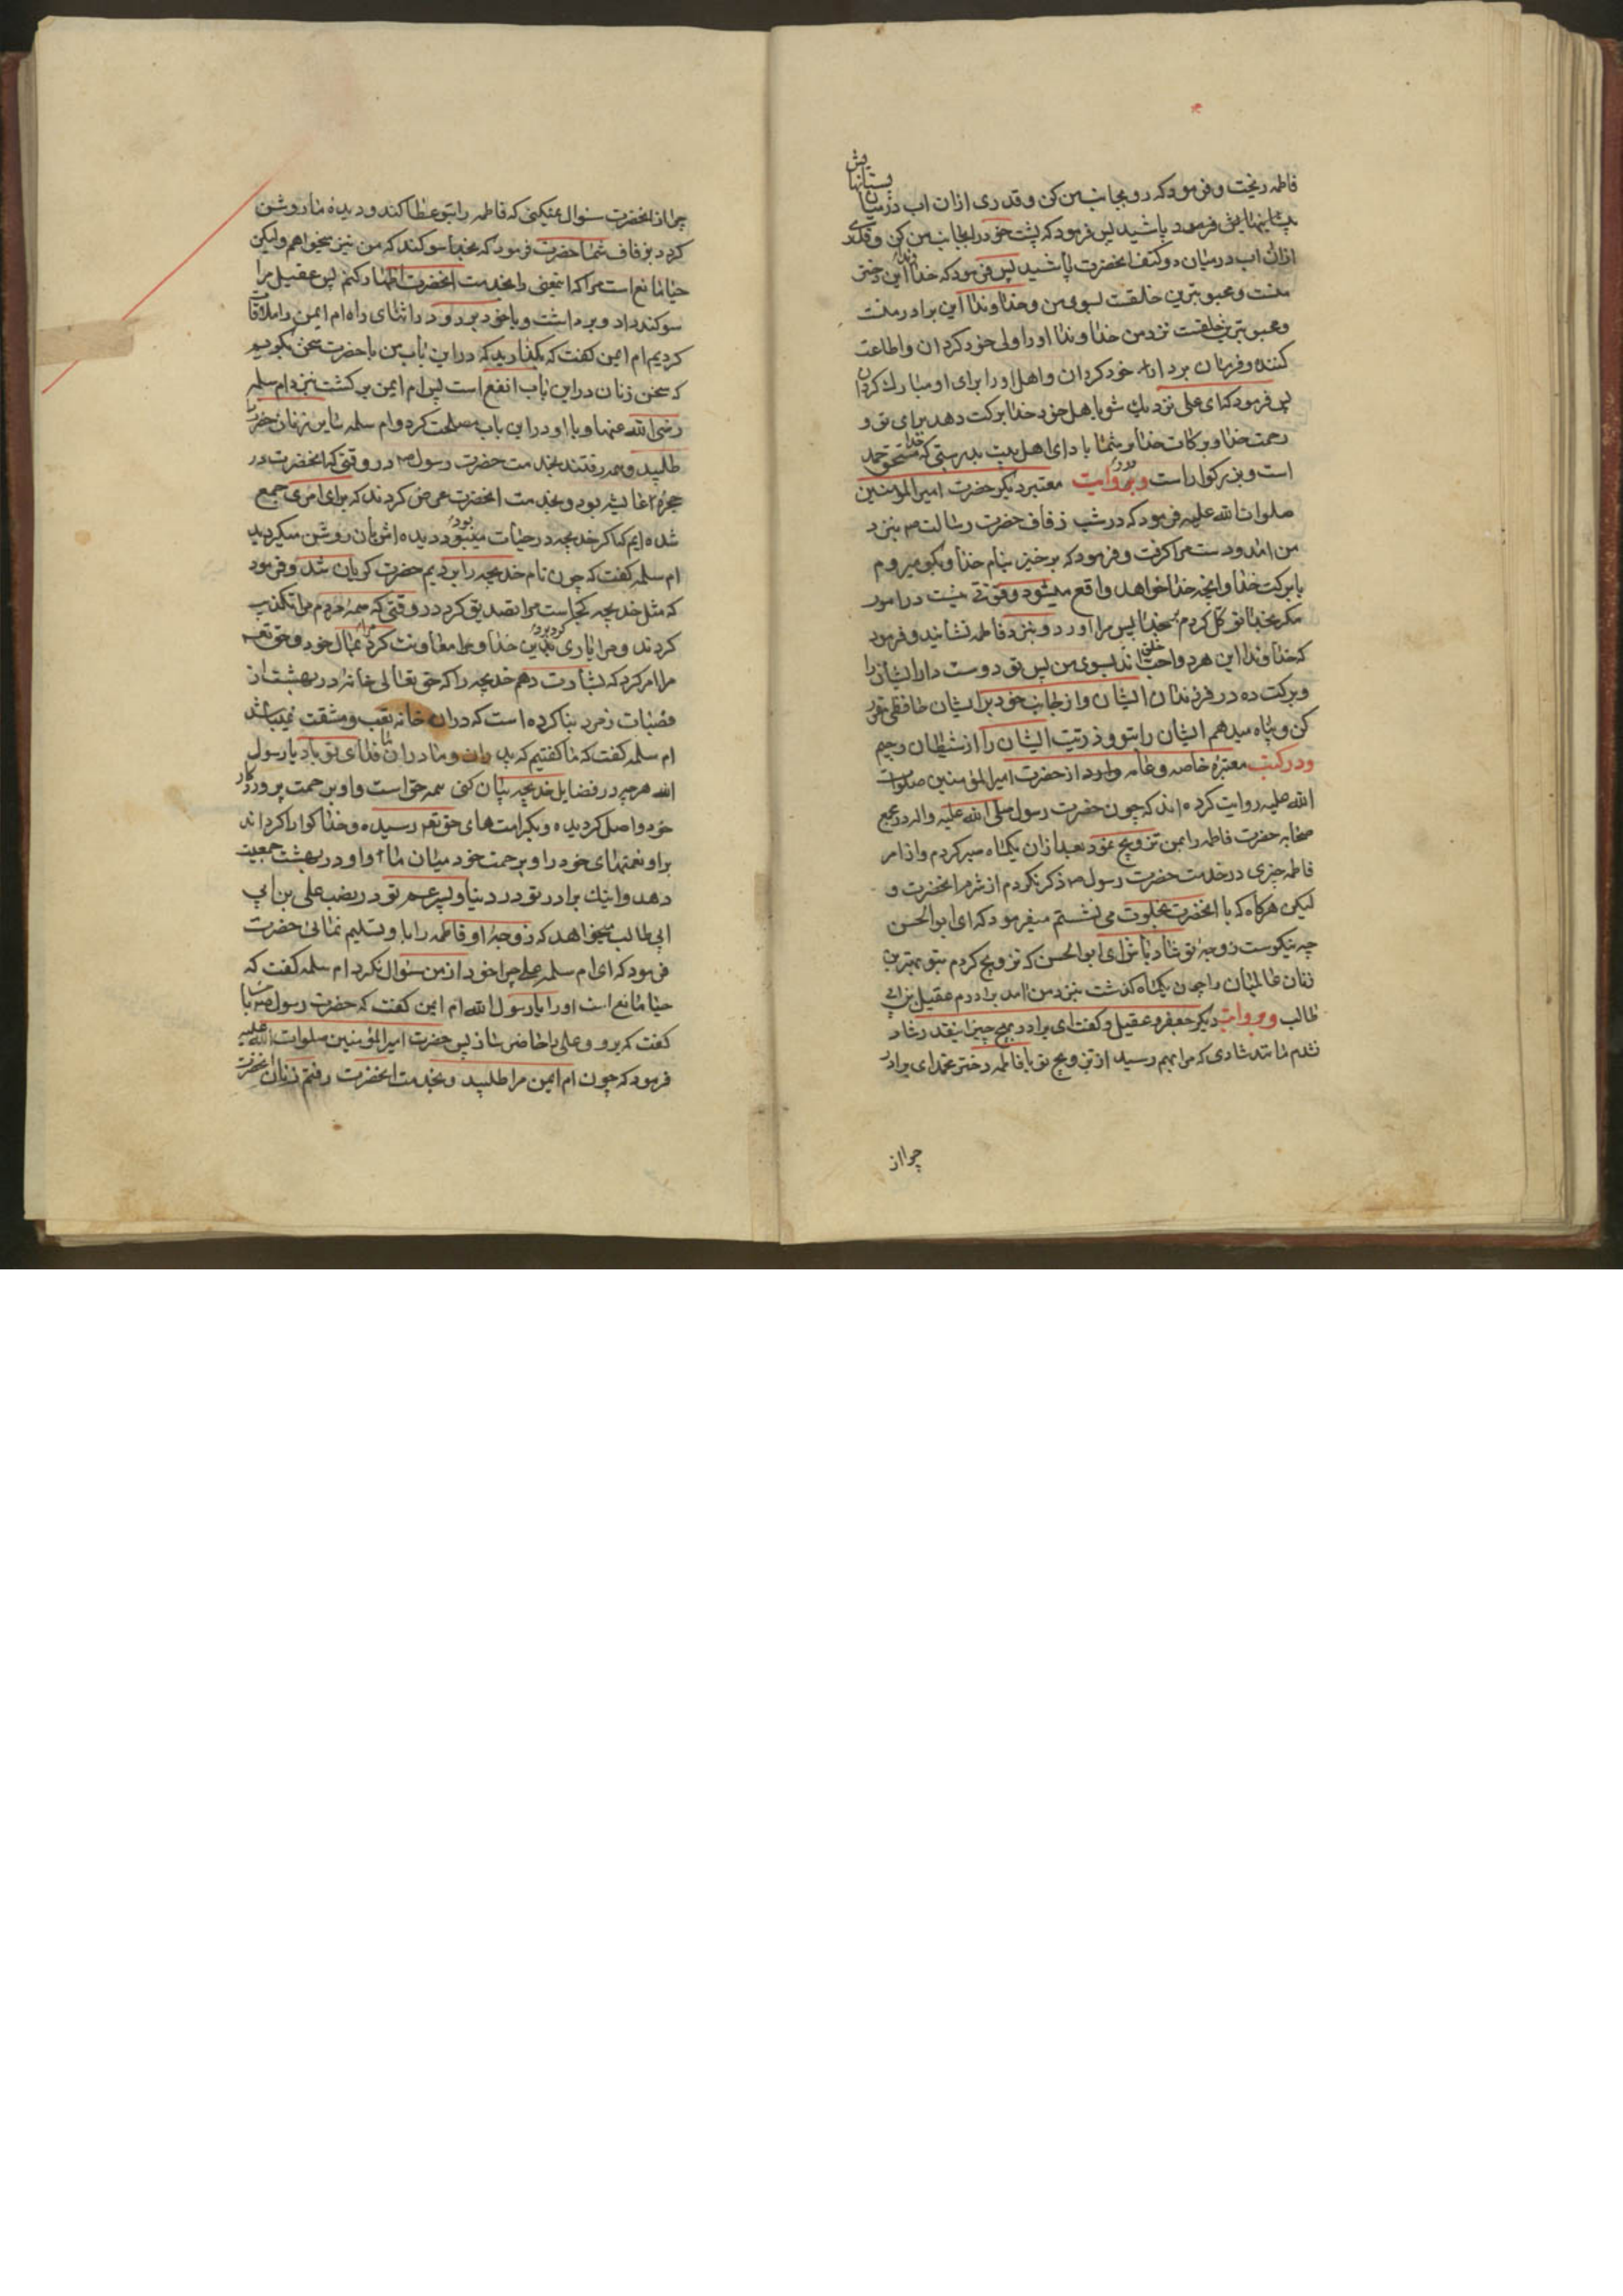 فاطمه ریخت و فرمود که رو بجانب من کن و قدری ازان اب در میان پستانهایش
فرمود پاشید پس فرمود که پشت خود را بجانب من کن و قدری
ازان اب در میان دو کتف انحضرت پاشید پس فرمود که خداوندا این دختر
منست و محبوبترین خلقست بسوی من و خداوندا این برادر منست
و محبوبترین خلقست نزد من خداوندا او را ولی خود کردان و اطاعت
کننده و فرمان بردار خود کردان و اهل او را برای او مبارك کردان
پس فرمود که ای علی نزدیك شو باهل خود خدا برکت دهد برای تو و
رحمت خدا و برکات خدا بر شما باد ای اهل بیت بدرستی که خدا مستحق حمد
است و بزرکوار است و بروایت معتبر دیکر حضرت امیرالمؤمنین
صلوات الله علیه فرمود که در شب زفاف حضرت رسالت ص بنزد
من امد و دست مرا کرفت و فرمود که برخیز بنام خدا و بکو میروم
بابرکت خدا و انچه خدا خواهد واقع میشود و قوتی نیست در امور
مکر بخدا توکل کردم بر خدا پس مرا اورد و بنزد فاطمه نشانید و فرمود
که خداوندا این هر دو احب خلق اند بسوی من پس تو دوست دار ایشانرا
و برکت ده در فرزندان ایشان و از جانب خود بر ایشان حافظی مقرر
کن و پناه میدهم ایشان را بتو و ذریت ایشان را از شیطان رجیم
و در کتب معتبره خاصه و عامه وارد از حضرت امیرالمؤمنین صلوات
الله علیه روایت کرده اند که چون حضرت رسول صلی الله علیه واله در مجمع
صحابه حضرت فاطمه را بمن تزویج نمود بعد ازان یکماه صبر کردم و از امر
فاطمه چیزی در خدمت حضرت رسول ص ذکر نکردم از شرم انحضرت و
لیکن هرکاه که با انحضرت بخلوت می نشستم میفرمود که ای ابوالحسن
چه نیکوست زوجهٔ تو شاد باش ای ابوالحسن که تزویج کردم بتو بهترین
زنان عالمیان را چون یکماه کذشت بنزد من امد برادرم عقیل بن ابی
طالب و بروایت دیکر جعفر و عقیل و کفت ای برادر بهیچ چیز اینقدر شاد
نشدم مانند شادی که مرا بهم رسید از تزویج تو با فاطمه دختر محمد ای برادر
چرا از
چرا از انحضرت سئوال نمیکنی که فاطمه را بتو عطا کند و دیده ما روشن
کردد بزفاف شما حضرت فرمود که بخدا سوکند که من نیز میخواهم ولیکن
حیا مانع است مرا که این معنی را بخدمت انحضرت اظهار کنم پس عقیل مرا
سوکند داد و برداشت و با خود برد و در اثنای راه ام ایمن را ملاقات
کردیم ام ایمن کفت که بکذارید که در این باب من با حضرت سخن بکویم
که سخن زنان در این باب انفع است پس ام ایمن برکشت بنزد ام سلمه
رضی الله عنها و با او در این باب مصلحت کرد و ام سلمه سایر زنان حضرت را
طلبید و همه رفتند بخدمت حضرت رسول ص در وقتی که انحضرت در
حجرهٔ عایشه بود و بخدمت انحضرت عرض کردند که برای امری جمع
شده ایم که اکر خدیجه در حیات میبود دیده اش بان روشن میکردید
ام سلمه کفت که چون نام خدیجه را بردیم حضرت کریان شد و فرمود
که مثل خدیجه کجاست مرا تصدیق کرد در وقتی که همه مردم مرا تکذیب
کردند و مرا یاری کرد بر دین خدا و مرا معاونت کرد بمال خود و حق تعم
مرا امر کرد که بشارت دهم خدیجه را که حق تعالی خانهٔ در بهشت از
قضبات زمرد بنا کرده است که دران خانه تعب و مشقت نمیباشد
ام سلمه کفت که ما کفتیم که پدران و مادران ما فدای تو باد یا رسول
الله هرچه در فضایل خدیجه بیان کنی همه حق است و او برحمت پروردکار
خود واصل کردیده و بکرامت های حق تعم رسیده و خدا کوارا کرداند
بر او نعمتهای خود را و برحمت خود میان ما و او در بهشت جمعیت
دهد و اینك برادر تو در دنیا و پسر عم تو در نسب علی بن ابی
ابی طالب میخواهد که زوجهٔ او فاطمه را باو تسلیم نمائی حضرت
فرمود که ای ام سلمه علی چرا خود از من سئوال نکرد ام سلمه کفت که
حیا مانع است او را یا رسول الله ام ایمن کفت که حضرت رسول ص با
کفت که برو و علی را حاضر ساز پس حضرت امیرالمؤمنین صلوات الله علیه
فرمود که چون ام ایمن مرا طلبید و بخدمت انحضرت رفتم زنان انحضرت